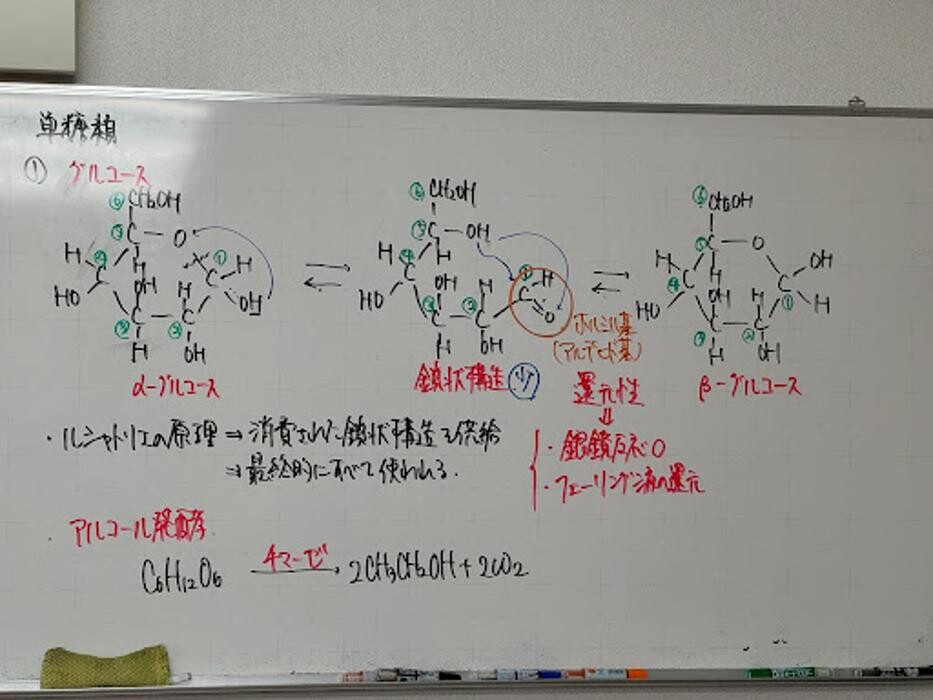 単糖類
① グルコース
⑥ CH2OH
⑤ C — O
H ④ C H OH H C ① H
HO OH
③ C — C ②
H OH
α-グルコース
⑥ CH2OH
⑤ C — OH
H ④ C H OH H ① C H
HO O
③ C — C ②
H OH
ホルミル基
(アルデヒド基)
鎖状構造 少
還元性
⇓
・銀鏡反応○
・フェーリング液の還元
⑥ CH2OH
⑤ C — O
H ④ C H OH H C ① OH
HO H
③ C — C ②
H OH
β-グルコース
・ルシャトリエの原理 ⇒ 消費された鎖状構造を供給
⇒ 最終的にすべて使われる.
・アルコール発酵
C6H12O6 チマーゼ → 2CH3CH2OH + 2CO2